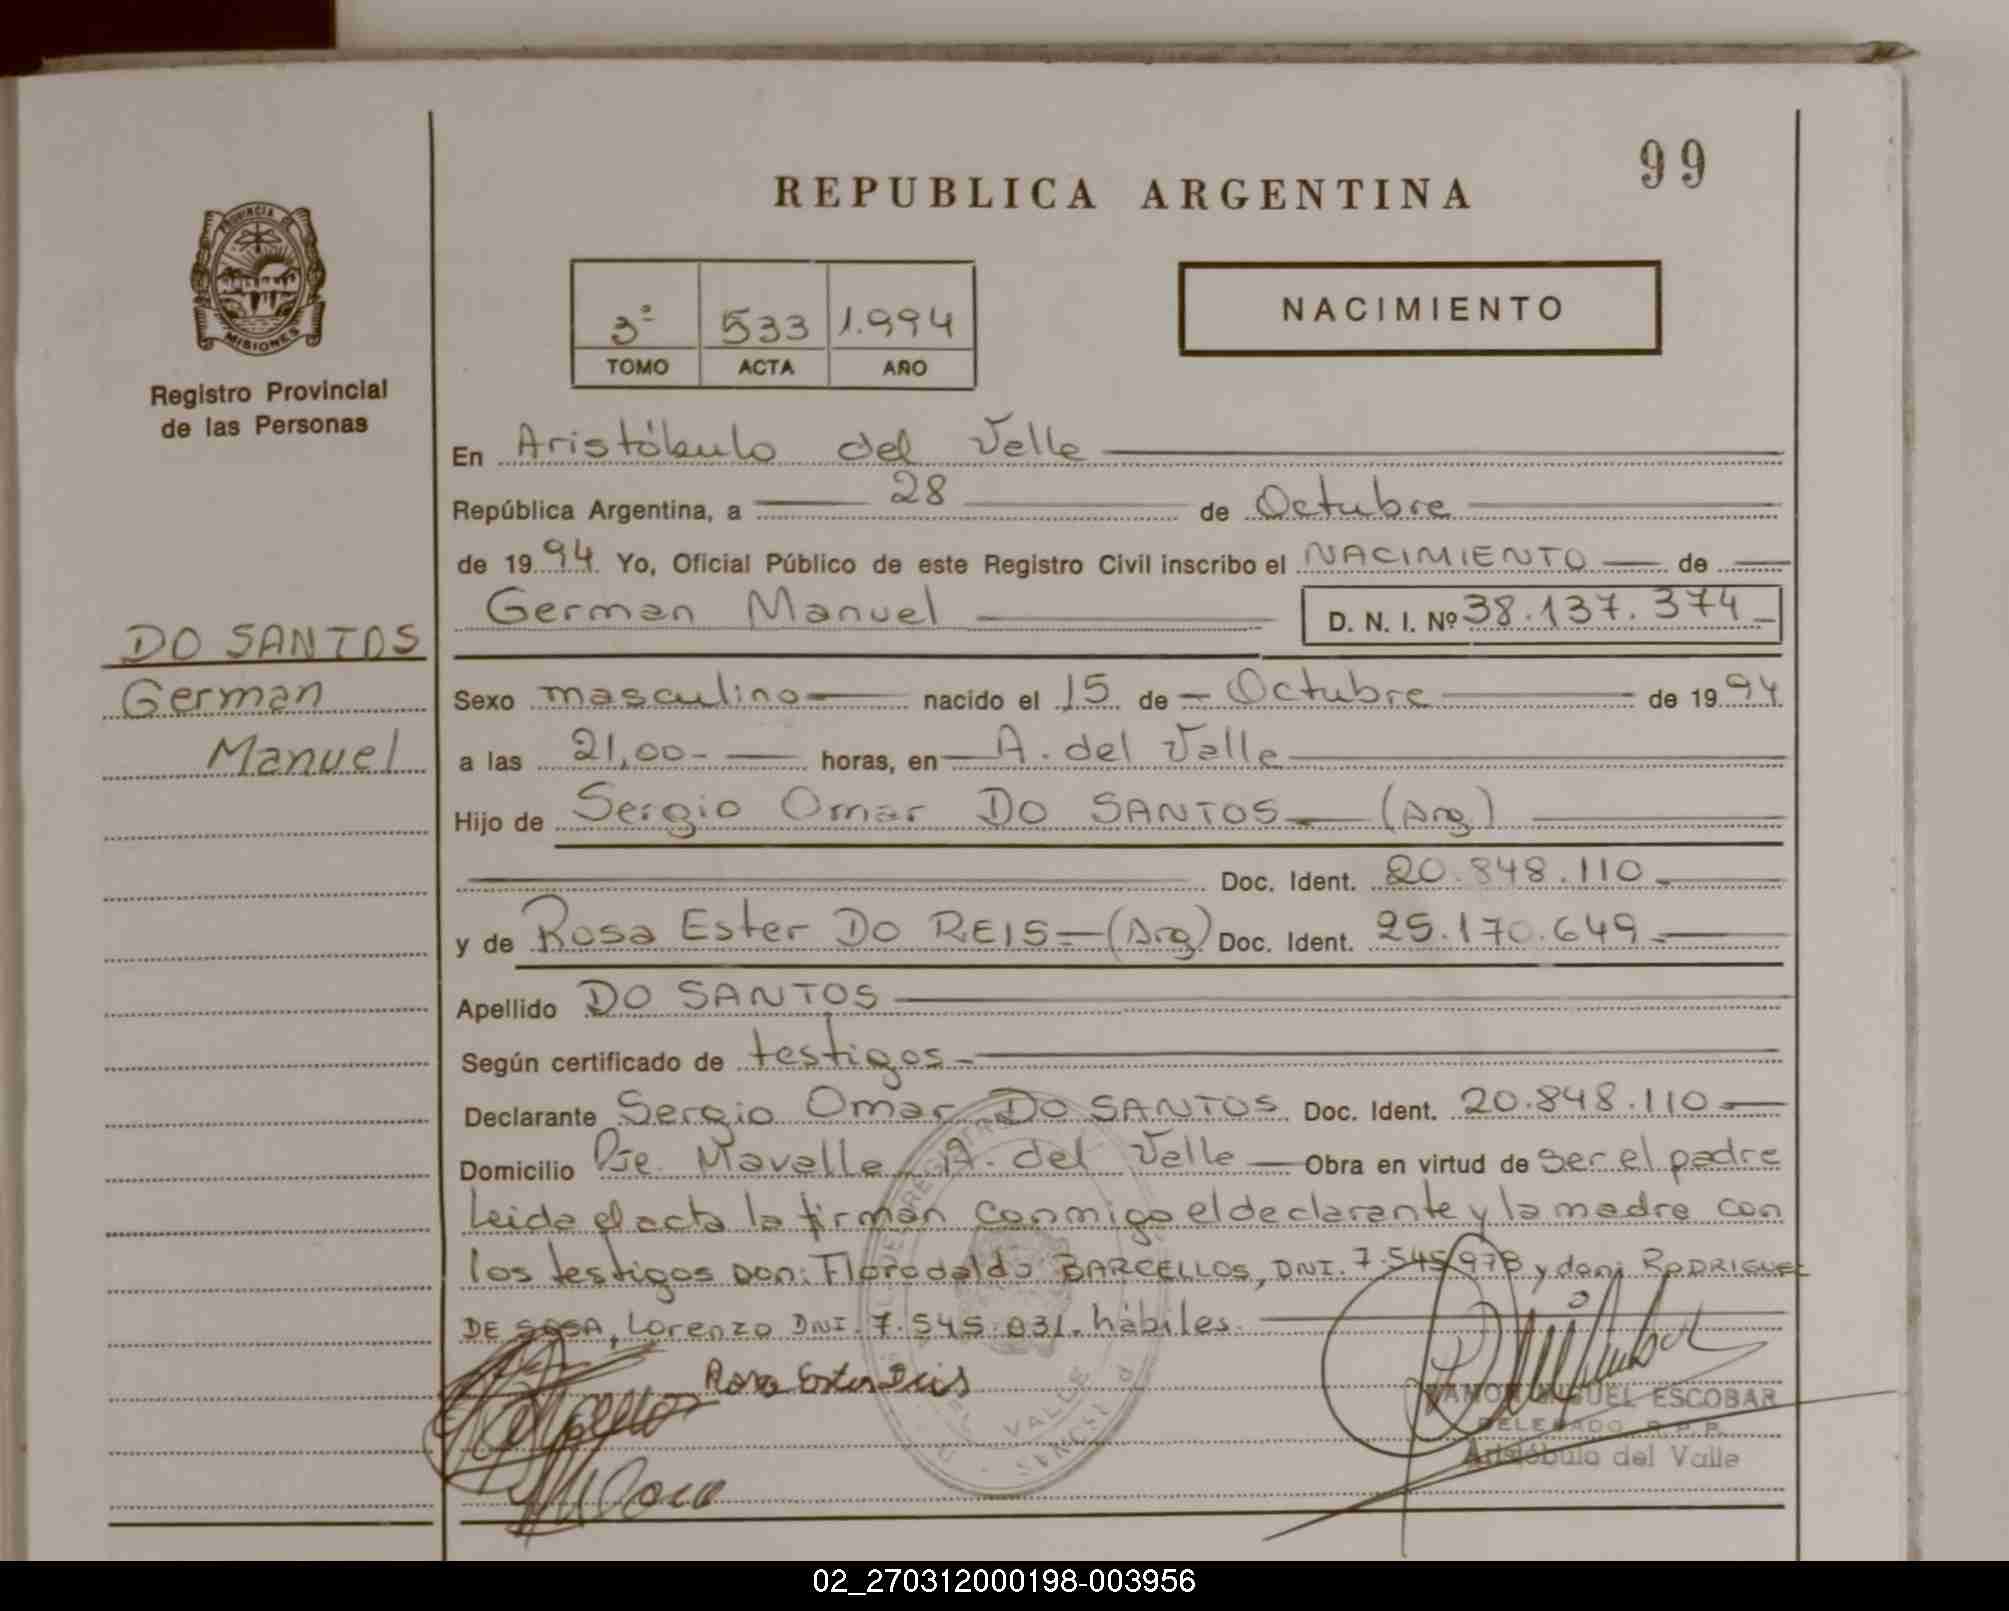 99
REPUBLICA ARGENTINA
PROVINCIA DE
MISIONES
Registro Provincial
de las Personas
3º 533 1.994
TOMO ACTA AÑO
NACIMIENTO
En Aristóbulo del Valle
República Argentina, a 28 de Octubre
de 1994. Yo, Oficial Público de este Registro Civil inscribo el NACIMIENTO de
German Manuel D. N. I. Nº 38.137.374
DO SANTOS
German
Manuel
Sexo masculino nacido el 15 de Octubre de 1994
a las 21,00 horas, en A. del Valle
Hijo de Sergio Omar DO SANTOS (Arg)
Doc. Ident. 20.848.110
y de Rosa Ester DO REIS (Arg) Doc. Ident. 25.170.649
Apellido DO SANTOS
Según certificado de testigos
Declarante Sergio Omar DO SANTOS Doc. Ident. 20.848.110
Domicilio Pje. Mavalle A. del Valle Obra en virtud de ser el padre
Leida el acta la firman conmigo el declarante y la madre con
los testigos Don: Florodaldo BARCELLOS, DNI. 7.545.978 y don: RODRIGUEZ
DE SOSA, Lorenzo DNI. 7.545.031. hábiles.
Rosa Ester Deis
RAMON MIGUEL ESCOBAR
DELEGADO R.P.P.
Aristóbulo del Valle
VALLE
02_270312000198-003956